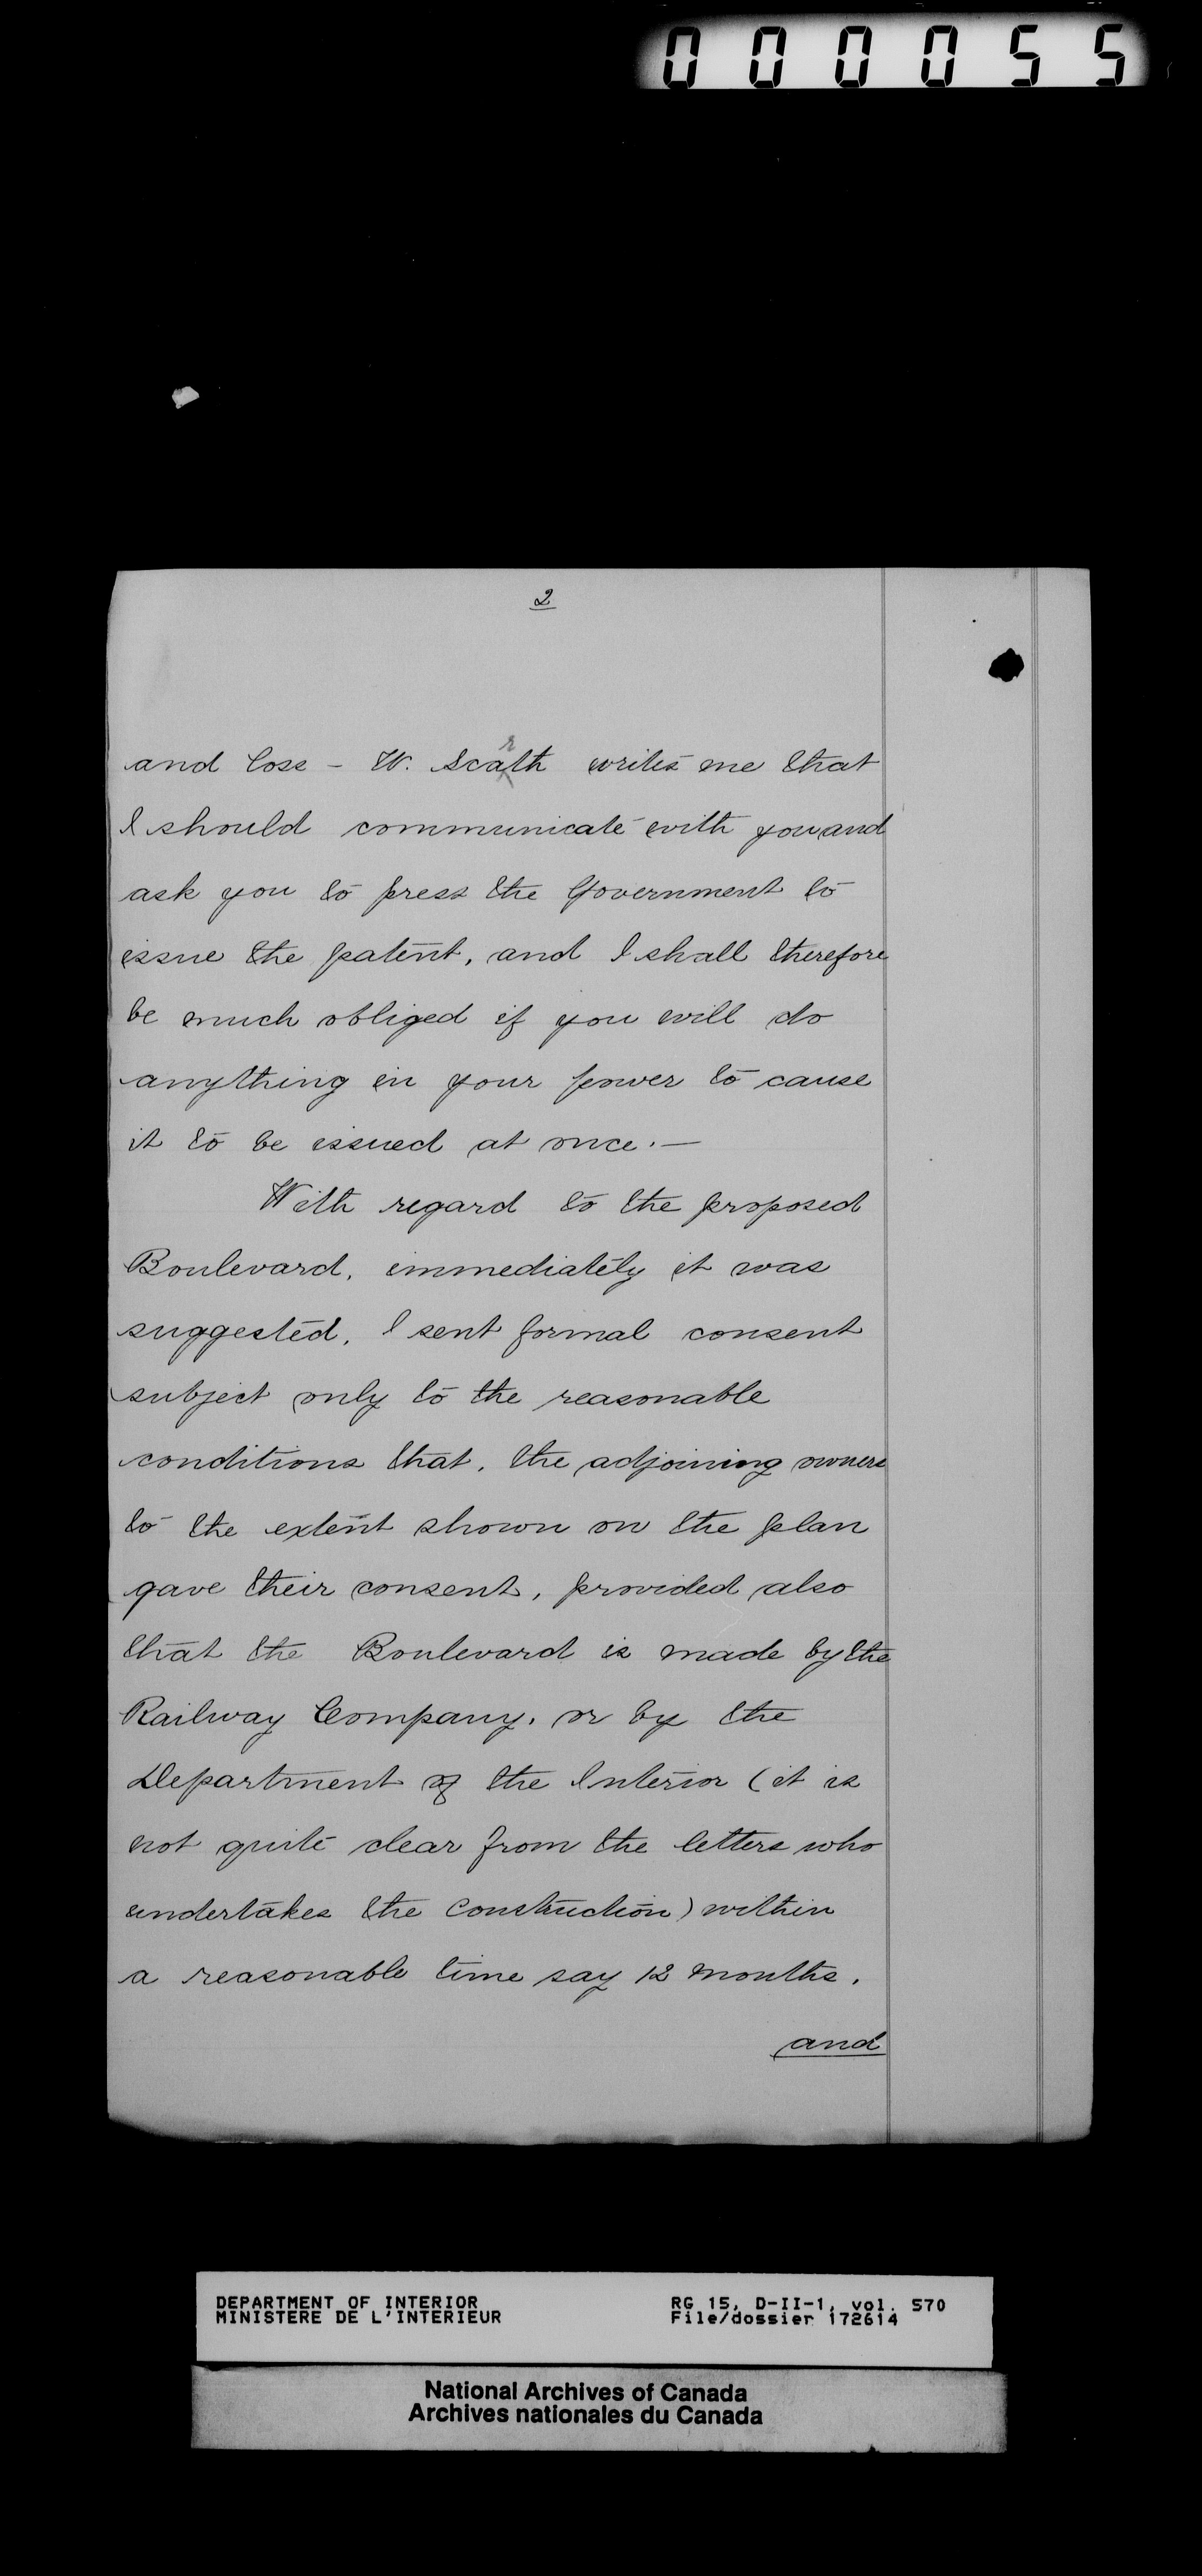 000055
2
and loss - W. Scarth writes me that
I should communicate with you and
ask you to press the Government to
issue the patent, and I shall therefore
be much obliged if you will do
anything in your power to cause
it to be issued at once. —
With regard to the proposed
Boulevard, immediately it was
suggested, I sent formal consent
subject only to the reasonable
conditions that, the adjoining owners
to the extent shown on the plan
gave their consent, provided also
that the Boulevard is made by the
Railway Company, or by the
Department of the Interior (it is
not quite clear from the letters who
undertakes the construction) within
a reasonable time say 12 months,
and
DEPARTMENT OF INTERIOR RG 15, D-II-1, vol. 570
MINISTERE DE L'INTERIEUR File/dossier 172614
National Archives of Canada
Archives nationales du Canada